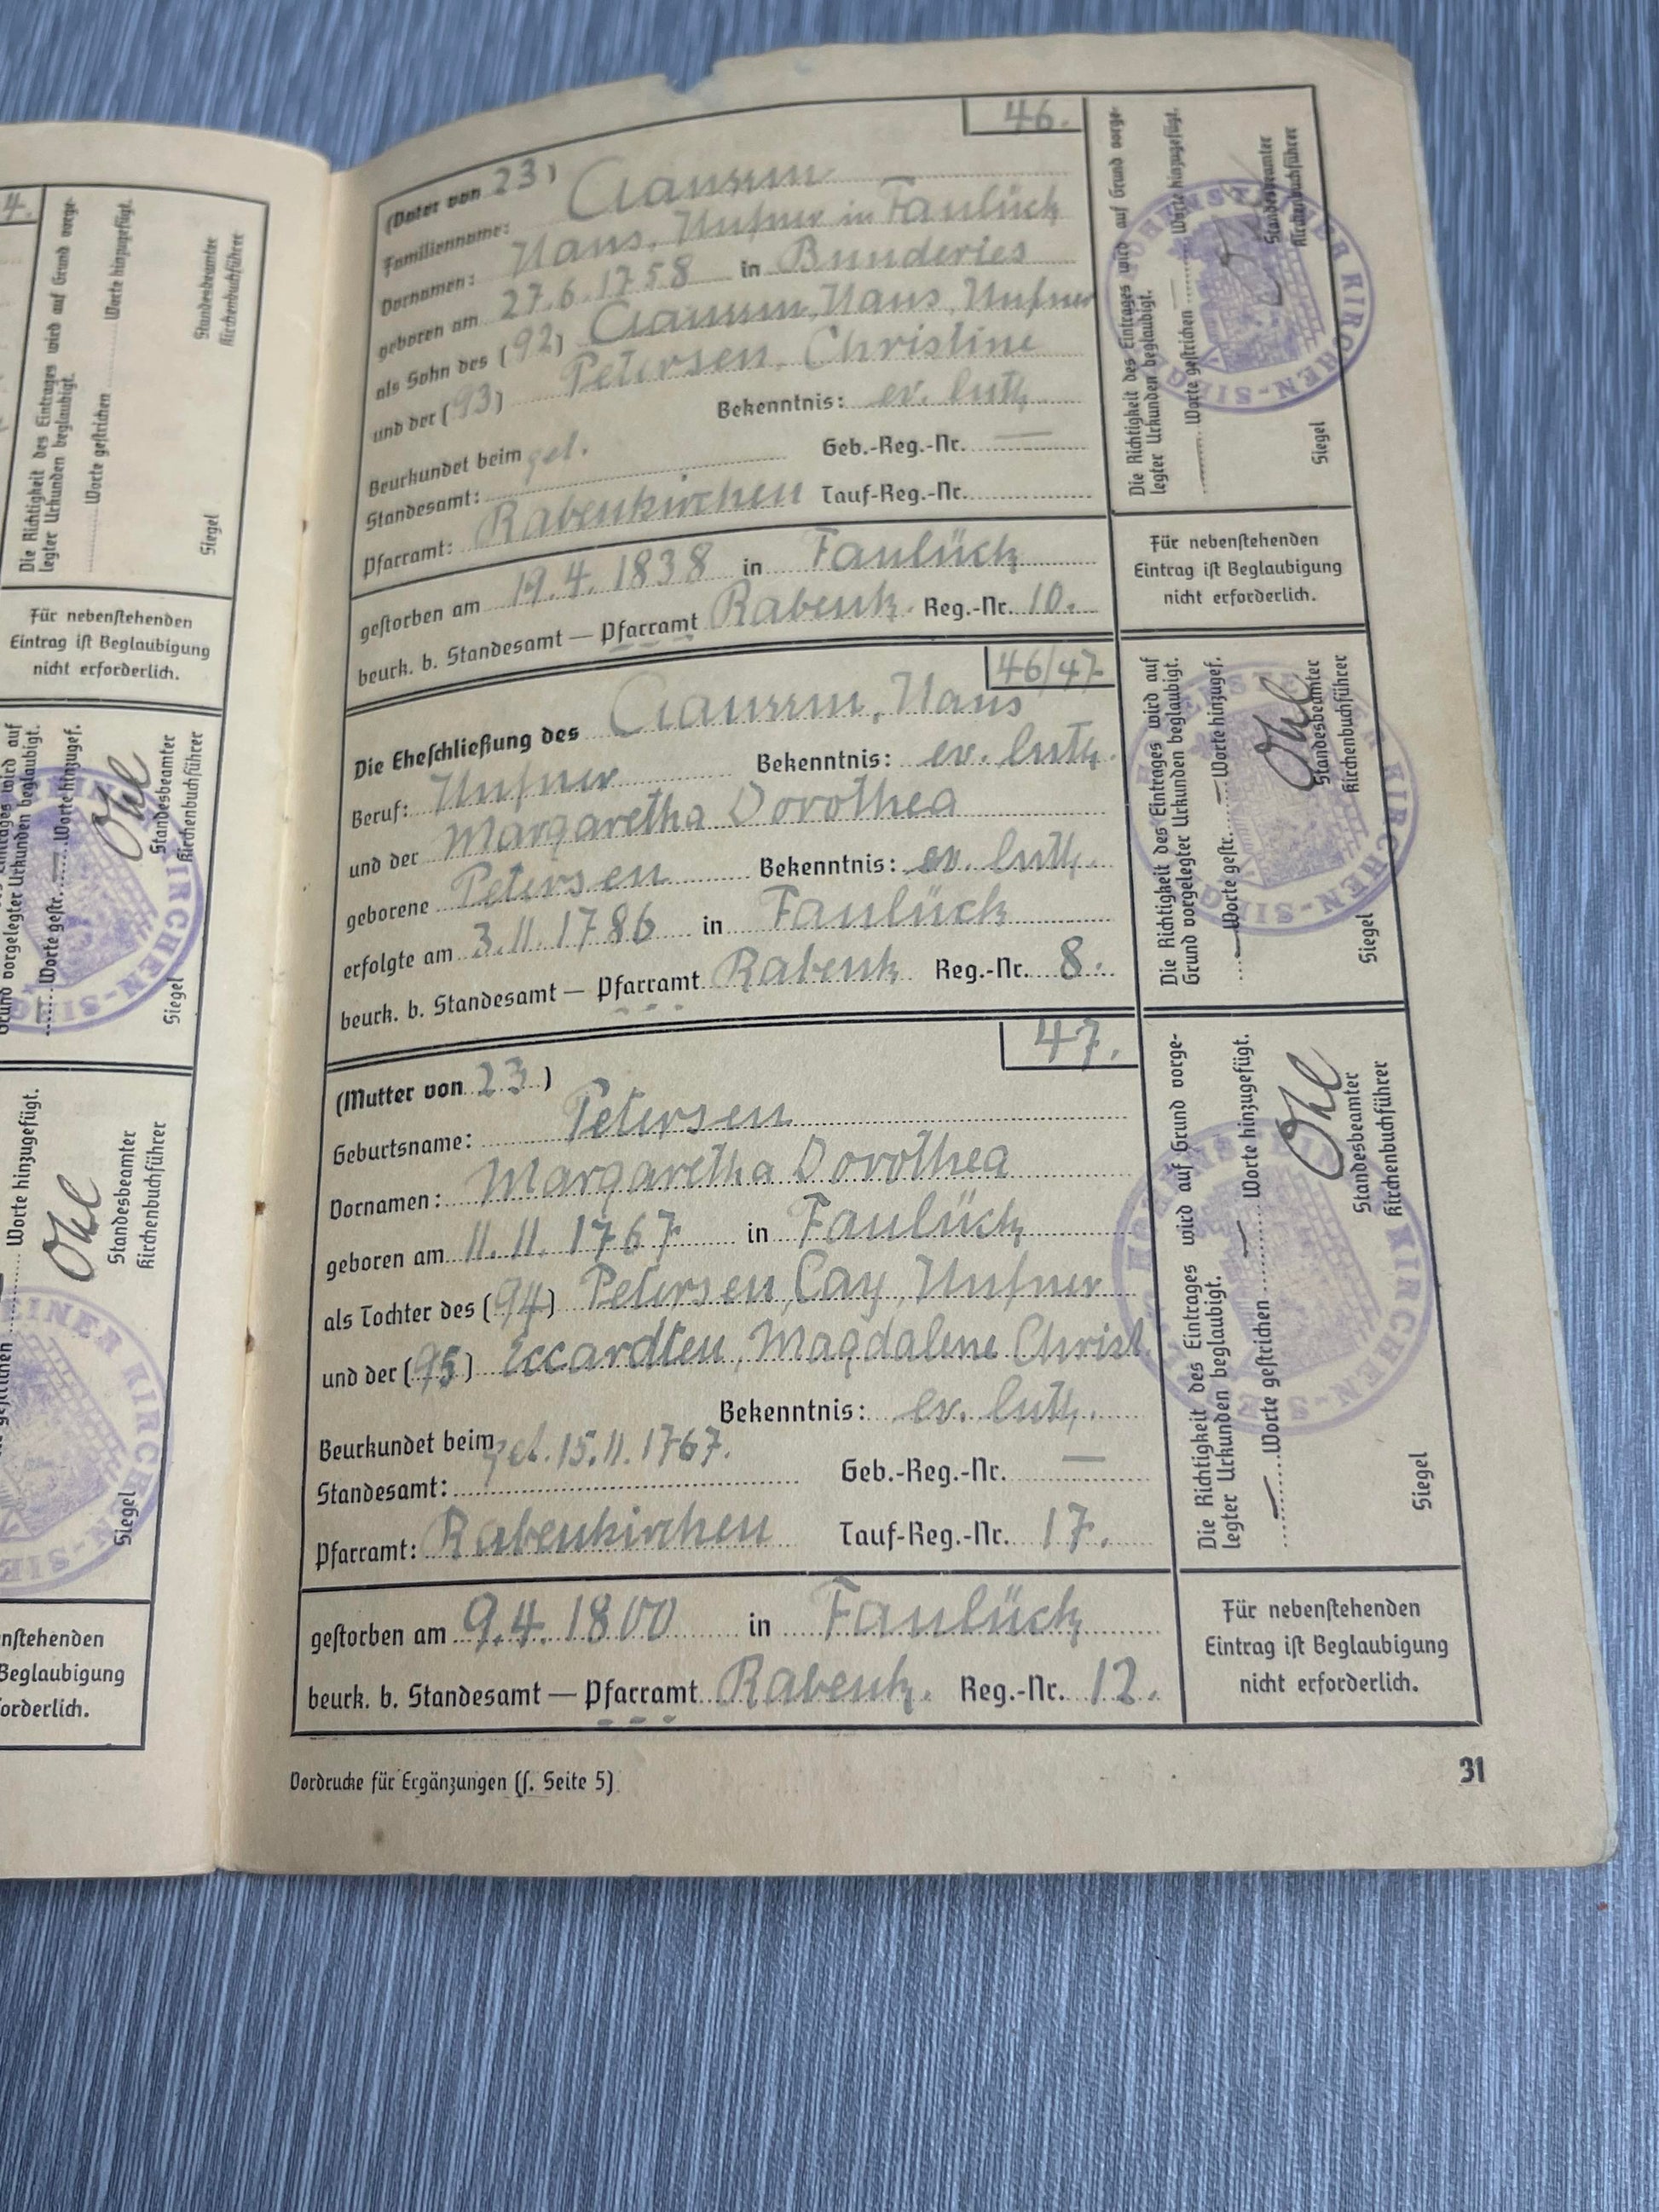 4.
Die Richtigkeit des Eintrages wird auf Grund vorge-
legter Urkunden beglaubigt.
Worte gestrichen Worte hinzugefügt.
Siegel
Standesbeamter
Kirchenbuchführer
Für nebenstehenden
Eintrag ist Beglaubigung
nicht erforderlich.
Grund vorgelegter Urkunden beglaubigt.
Worte gestr. Worte hinzugef.
Ohl
Siegel
Standesbeamter
Kirchenbuchführer
Worte hinzugefügt.
Ohl
Siegel
Standesbeamter
Kirchenbuchführer
nstehenden
Beglaubigung
orderlich.
46.
(Vater von 23)
Familienname:
Vornamen: Hans, Hufner in Faulück
geboren am 27.6.1758 in Bunderies
als Sohn des (92) Hans, Hufner
und der (93) Petersen, Christine
Bekenntnis: ev. luth.
Beurkundet beim get.
Geb.-Reg.-Nr. —
Standesamt:
Pfarramt: Rabenkirchen Tauf-Reg.-Nr.
gestorben am 19.4.1838 in Faulück
beurk. b. Standesamt — Pfarramt Rabenk. Reg.-Nr. 10.
46/47
Die Eheschließung des Hans
Beruf: Hufner Bekenntnis: ev. luth.
und der Margaretha Dorothea
geborene Petersen Bekenntnis: ev. luth.
erfolgte am 3.11.1786 in Faulück
beurk. b. Standesamt — Pfarramt Rabenk. Reg.-Nr. 8.
47.
(Mutter von 23)
Geburtsname: Petersen
Vornamen: Margaretha Dorothea
geboren am 11.11.1767 in Faulück
als Tochter des (94) Petersen, Cay, Hufner
und der (95) Eccardten, Magdalene Christ.
Bekenntnis: ev. luth.
Beurkundet beim get. 15.11.1767.
Geb.-Reg.-Nr. —
Standesamt:
Pfarramt: Rabenkirchen Tauf-Reg.-Nr. 17.
gestorben am 9.4.1800 in Faulück
beurk. b. Standesamt — Pfarramt Rabenk. Reg.-Nr. 12.
Die Richtigkeit des Eintrages wird auf Grund vorge-
legter Urkunden beglaubigt.
Worte gestrichen — Worte hinzugefügt.
Siegel
Standesbeamter
Kirchenbuchführer
KIRCHEN-SIEG
Für nebenstehenden
Eintrag ist Beglaubigung
nicht erforderlich.
Die Richtigkeit des Eintrages wird auf
Grund vorgelegter Urkunden beglaubigt.
— Worte gestr. — Worte hinzugef.
Ohl
Siegel
Standesbeamter
Kirchenbuchführer
KIRCHEN-SIEG
Die Richtigkeit des Eintrages wird auf Grund vorge-
legter Urkunden beglaubigt.
— Worte gestrichen — Worte hinzugefügt.
Ohl
Siegel
Standesbeamter
Kirchenbuchführer
Für nebenstehenden
Eintrag ist Beglaubigung
nicht erforderlich.
Vordrucke für Ergänzungen (s. Seite 5)
31